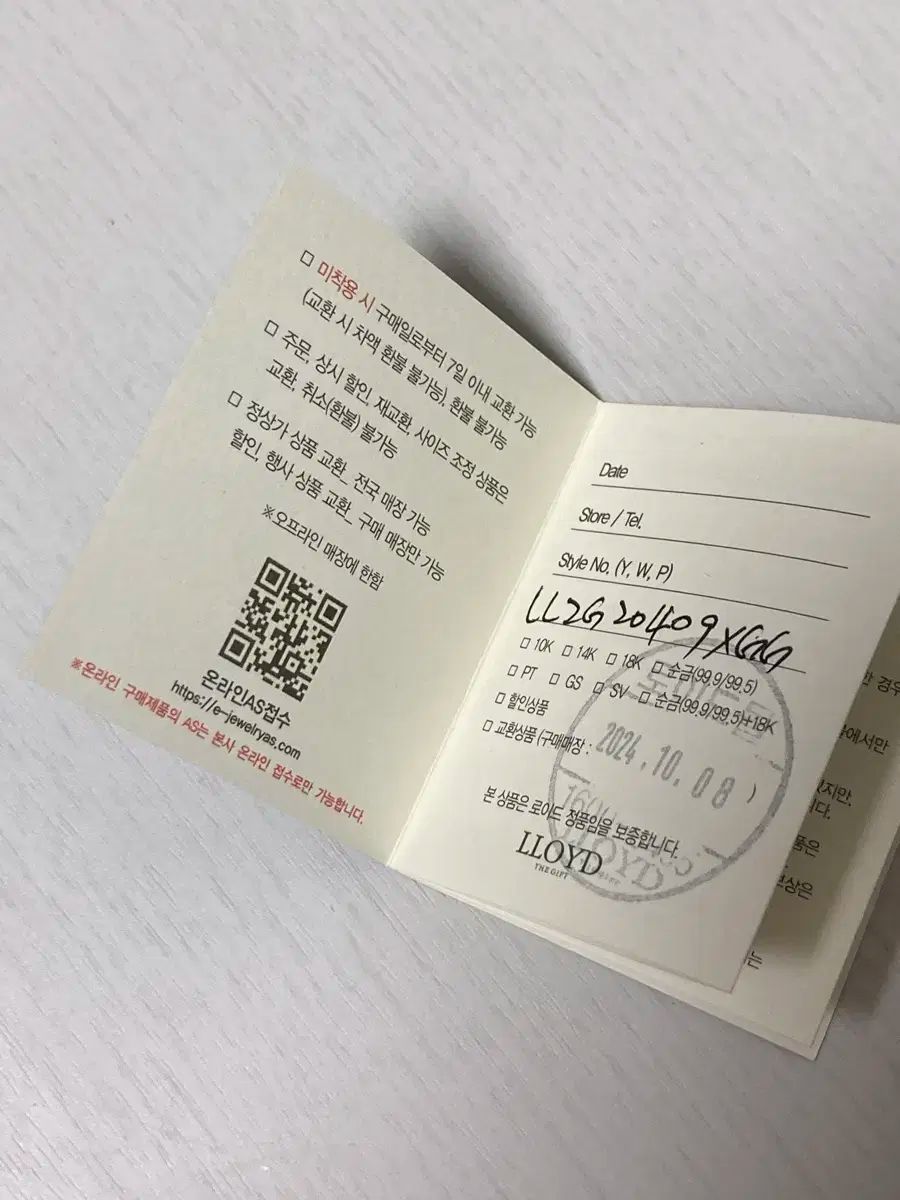 □ 미착용 시 구매일로부터 7일 이내 교환 가능
(교환 시 차액 환불 불가능), 환불 불가능
□ 주문, 상시 할인, 재교환, 사이즈 조정 상품은
교환, 취소(환불) 불가능
□ 정상가 상품 교환_ 전국 매장 가능
할인, 행사 상품 교환_ 구매 매장만 가능
※오프라인 매장에 한함
온라인AS접수
https://e-jewelryas.com
※온라인 구매제품의 AS는 본사 온라인 접수로만 가능합니다.
Date
Store / Tel.
Style No. (Y, W, P)
LL2G20409XGG
□ 10K □ 14K □ 18K □ 순금(99.9/99.5)
□ PT □ GS □ SV □ 순금(99.9/99.5)+18K
□ 할인상품
□ 교환상품 (구매매장 : )
2024.10.08
본 상품은 로이드 정품임을 보증합니다.
LLOYD
THE GIFT
LLOYD
경우
에서만
있지만,
니다.
품은
상은
는